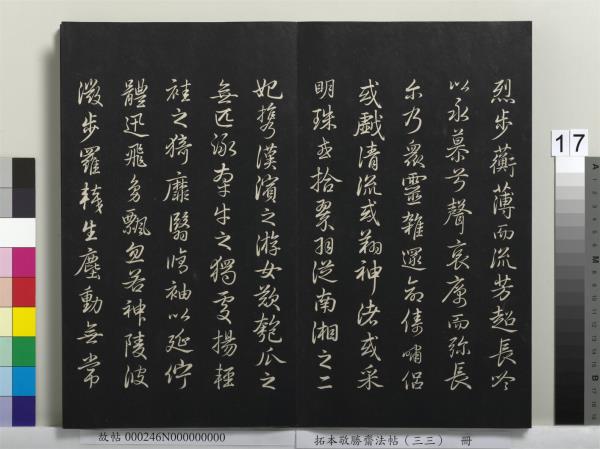 烈步蘅薄而流芳超長吟
以永慕兮聲哀厲而弥長
尔乃衆靈雜遝命儔嘯侶
或戲清流或翔神渚或采
明珠或拾翠羽從南湘之二
妃攜漢濱之游女歎匏瓜之
無匹詠牽牛之獨處揚輕
袿之猗靡翳脩袖以延佇
體迅飛鳧飄忽若神陵波
微步羅韈生塵動無常
17
故帖 000246N000000000
拓本敬勝齋法帖(三三) 冊